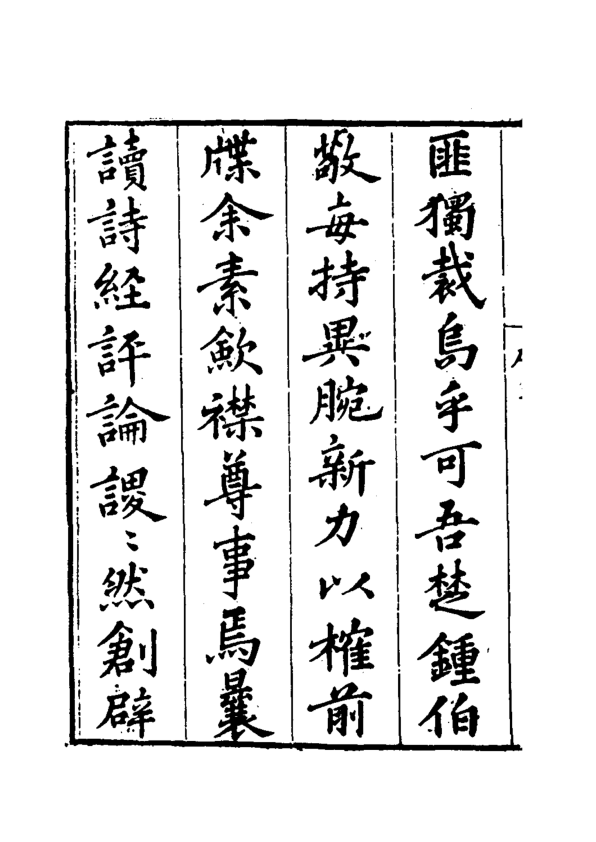 匪獨裁烏乎可吾楚鍾伯
敬每持異腕新力以榷前
牒余素歛襟尊事焉曩
讀詩経評論謖〻然創辟